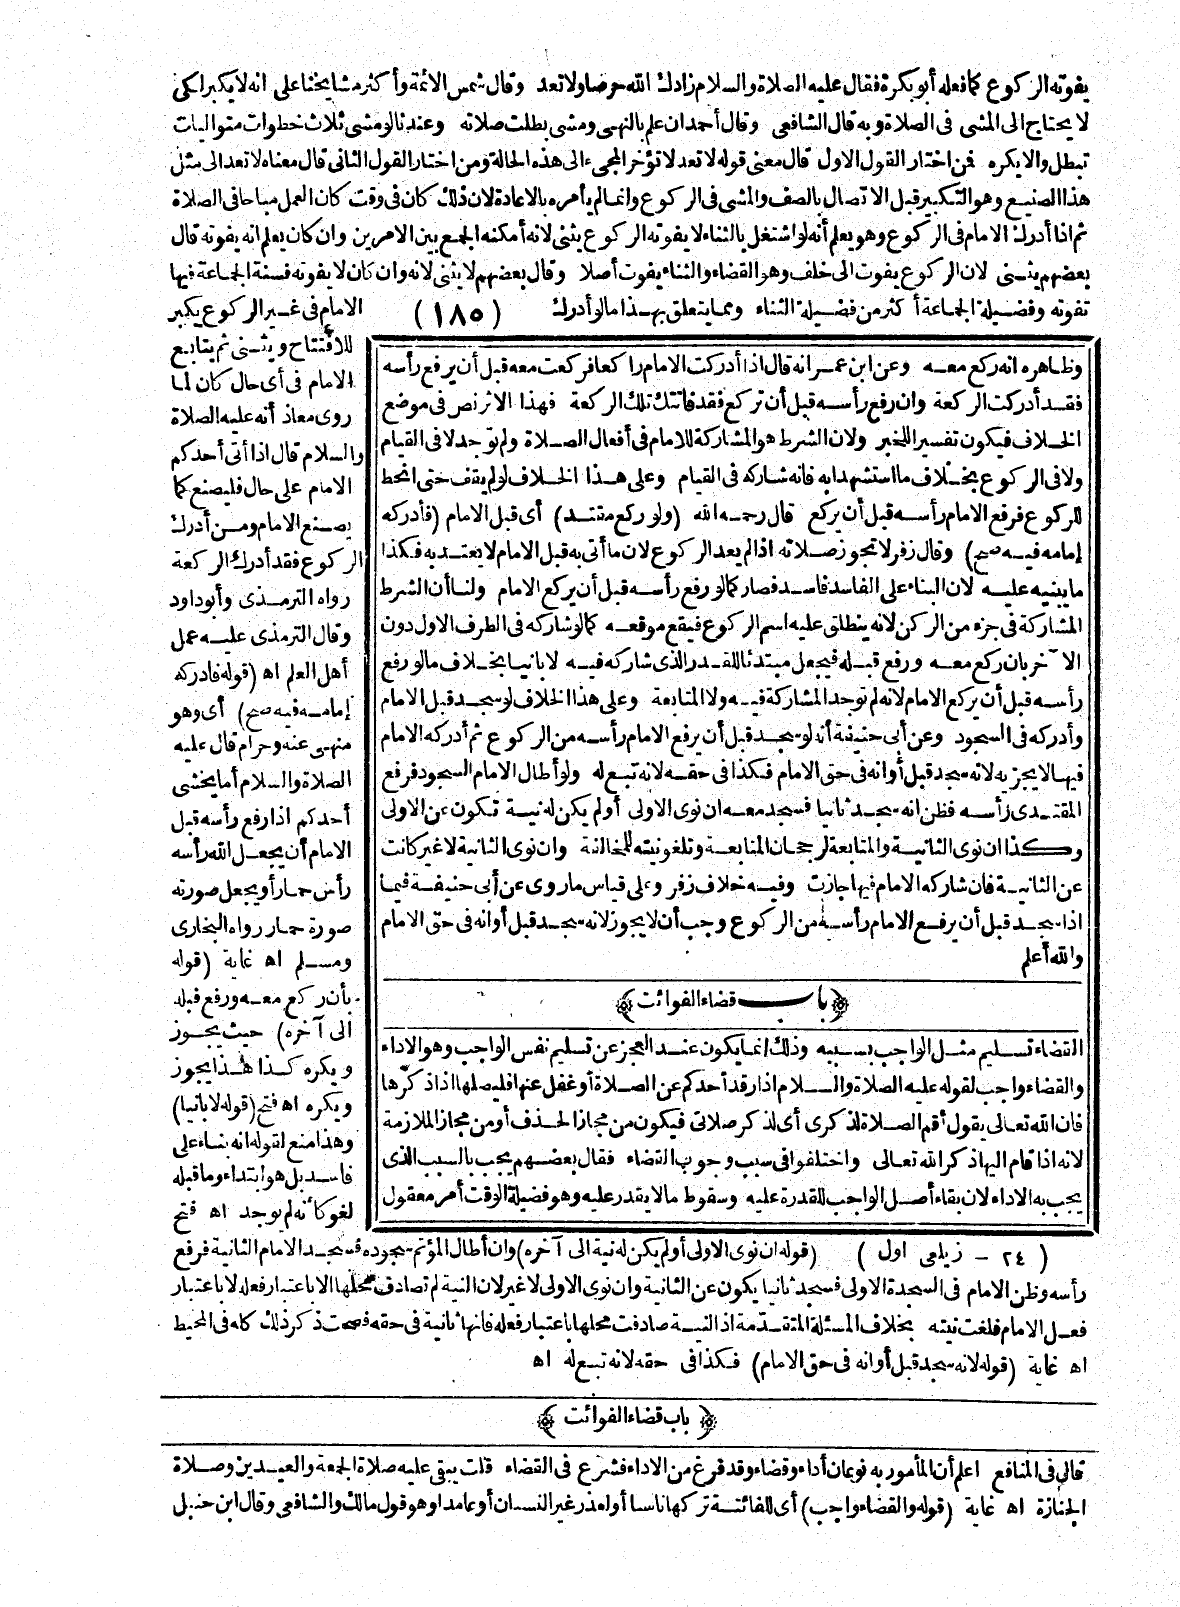 يفوته الركوع كما فعله أبو بكرة فقال عليه الصلاة والسلام زادك الله حرصا ولا تعد وقال شمس الائمة وأكثر مشايخنا على انه لا يكبر لكى
لا يحتاج الى المشى فى الصلاة وبه قال الشافعى وقال أحمد ان علم بالنهى ومشى بطلت صلاته وعندنا لو مشى ثلاث خطوات متواليات
تبطل والا يكره فمن اختار القول الاول قال معنى قوله لا تعد لا تؤخر المجىء الى هذه الحالة ومن اختار القول الثانى قال معناه لا تعد الى مثل
هذا الصنيع وهو التكبير قبل الاتصال بالصف والمشى فى الركوع وانما لم يأمره بالاعادة لان ذلك كان فى وقت كان العمل مباحا فى الصلاة
ثم اذا أدرك الامام فى الركوع وهو يعلم أنه لو اشتغل بالثناء لا يفوته الركوع يثنى لانه أمكنه الجمع بين الامرين وان كان يعلم انه يفوته قال
بعضهم يثنى لان الركوع يفوت الى خلف وهو القضاء والثناء يفوت أصلا وقال بعضهم لا يثنى لانه وان كان لا يفوته فسنة الجماعة فيها
تفوته وفضيلة الجماعة أكثر من فضيلة الثناء ومما يتعلق بهذا ما لو أدرك (١٨٥) الامام فى غير الركوع يكبر
للافتتاح ويثنى ثم يتابع
الامام فى أى حال كان لما
روى معاذ أنه عليه الصلاة
والسلام قال اذا أتى أحدكم
الامام على حال فليصنع كما
يصنع الامام ومن أدرك
الركوع فقد أدرك الركعة
رواه الترمذى وأبو داود
وقال الترمذى عليه عمل
أهل العلم اه (قوله فادركه
إمامه فيه صح) أى وهو
منهى عنه وحرام قال عليه
الصلاة والسلام أما يخشى
أحدكم اذا رفع رأسه قبل
الامام أن يجعل الله رأسه
رأس حمار أو يجعل صورته
صورة حمار رواه البخارى
ومسلم اه غاية (قوله
بأن ركع معه ورفع قبله
الى آخره) حيث يجوز
ويكره كذا هذا يجوز
ويكره اه فتح (قوله لا بانيا)
وهذا منع لقوله انه بناء على
فاسد بل هو ابتداء وما قبله
لغو كأنه لم يوجد اه فتح
وظاهره انه ركع معه وعن ابن عمر انه قال اذا أدركت الامام راكعا فركعت معه قبل أن يرفع رأسه
فقد أدركت الركعة وان رفع رأسه قبل أن تركع فقد فاتتك تلك الركعة فهذا الاثر نص فى موضع
الخلاف فيكون تفسيرا للخبر ولان الشرط هو المشاركة للامام فى أفعال الصلاة ولم توجد لا فى القيام
ولا فى الركوع بخلاف ما استشهد به فانه شاركه فى القيام وعلى هذا الخلاف لو لم يقف حتى انحط
للركوع فرفع الامام رأسه قبل أن يركع قال رحمه الله (ولو ركع مقتد) أى قبل الامام (فأدركه
إمامه فيه صح) وقال زفر لا تجوز صلاته اذا لم يعد الركوع لان ما أتى به قبل الامام لا يعتد به فكذا
ما يبنيه عليه لان البناء على الفاسد فاسد فصار كما لو رفع رأسه قبل أن يركع الامام ولنا أن الشرط
المشاركة فى جزء من الركن لانه ينطلق عليه اسم الركوع فيقع موقعه كما لو شاركه فى الطرف الاول دون
الآخر بان ركع معه ورفع قبله فيجعل مبتدئا للقدر الذى شاركه فيه لا بانيا بخلاف ما لو رفع
رأسه قبل أن يركع الامام لانه لم توجد المشاركة فيه ولا المتابعة وعلى هذا الخلاف لو سجد قبل الامام
وأدركه فى السجود وعن أبى حنيفة أنه لو سجد قبل أن يرفع الامام رأسه من الركوع ثم أدركه الامام
فيها لا يجزيه لانه سجد قبل أوانه فى حق الامام فكذا فى حقه لانه تبع له ولو أطال الامام السجود فرفع
المقتدى رأسه فظن انه سجد ثانيا فسجد معه ان نوى الاولى أو لم يكن له نية تكون عن الاولى
وكذا ان نوى الثانية والمتابعة لرجحان المتابعة وتلغو نيته للمخالفة وان نوى الثانية لا غير كانت
عن الثانية فان شاركه الامام فيها جازت وفيه خلاف زفر وعلى قياس ما روى عن أبى حنيفة فيما
اذا سجد قبل أن يرفع الامام رأسه من الركوع وجب أن لا يجوز لانه سجد قبل أوانه فى حق الامام
والله أعلم
﴿باب قضاء الفوائت﴾
القضاء تسليم مثل الواجب بسببه وذلك انما يكون عند العجز عن تسليم نفس الواجب وهو الاداء
والقضاء واجب لقوله عليه الصلاة والسلام اذا رقد أحدكم عن الصلاة أو غفل عنها فليصلها اذا ذكرها
فان الله تعالى يقول أقم الصلاة لذكرى أى لذكر صلاتى فيكون من مجاز الحذف أو من مجاز الملازمة
لانه اذا قام اليها ذكر الله تعالى واختلفوا فى سبب وجوب القضاء فقال بعضهم يجب بالسبب الذى
يجب به الاداء لان بقاء أصل الواجب للقدرة عليه وسقوط ما لا يقدر عليه وهو فضيلة الوقت أمر معقول
(٢٤ - زيلعى اول) (قوله ان نوى الاولى أو لم يكن له نية الى آخره) وان أطال المؤتم سجوده فسجد الامام الثانية فرفع
رأسه وظن الامام فى السجدة الاولى فسجد ثانيا يكون عن الثانية وان نوى الاولى لا غير لان النية لم تصادف محلها لا باعتبار فعله لا باعتبار
فعل الامام فلغت نيته بخلاف المسئلة المتقدمة اذ النية صادفت محلها باعتبار فعله فانها ثانية فى حقه فصحت ذكر ذلك كله فى المحيط
اه غاية (قوله لانه سجد قبل أوانه فى حق الامام) فكذا فى حقه لانه تبع له اه
﴿باب قضاء الفوائت﴾
قال فى المنافع اعلم أن المأمور به نوعان أداء وقضاء وقد فرغ من الاداء فشرع فى القضاء قلت يبقى عليه صلاة الجمعة والعيدين وصلاة
الجنازة اه غاية (قوله والقضاء واجب) أى للفائتة تركها ناسيا أو لعذر غير النسيان أو عامدا وهو قول مالك والشافعى وقال ابن حنبل